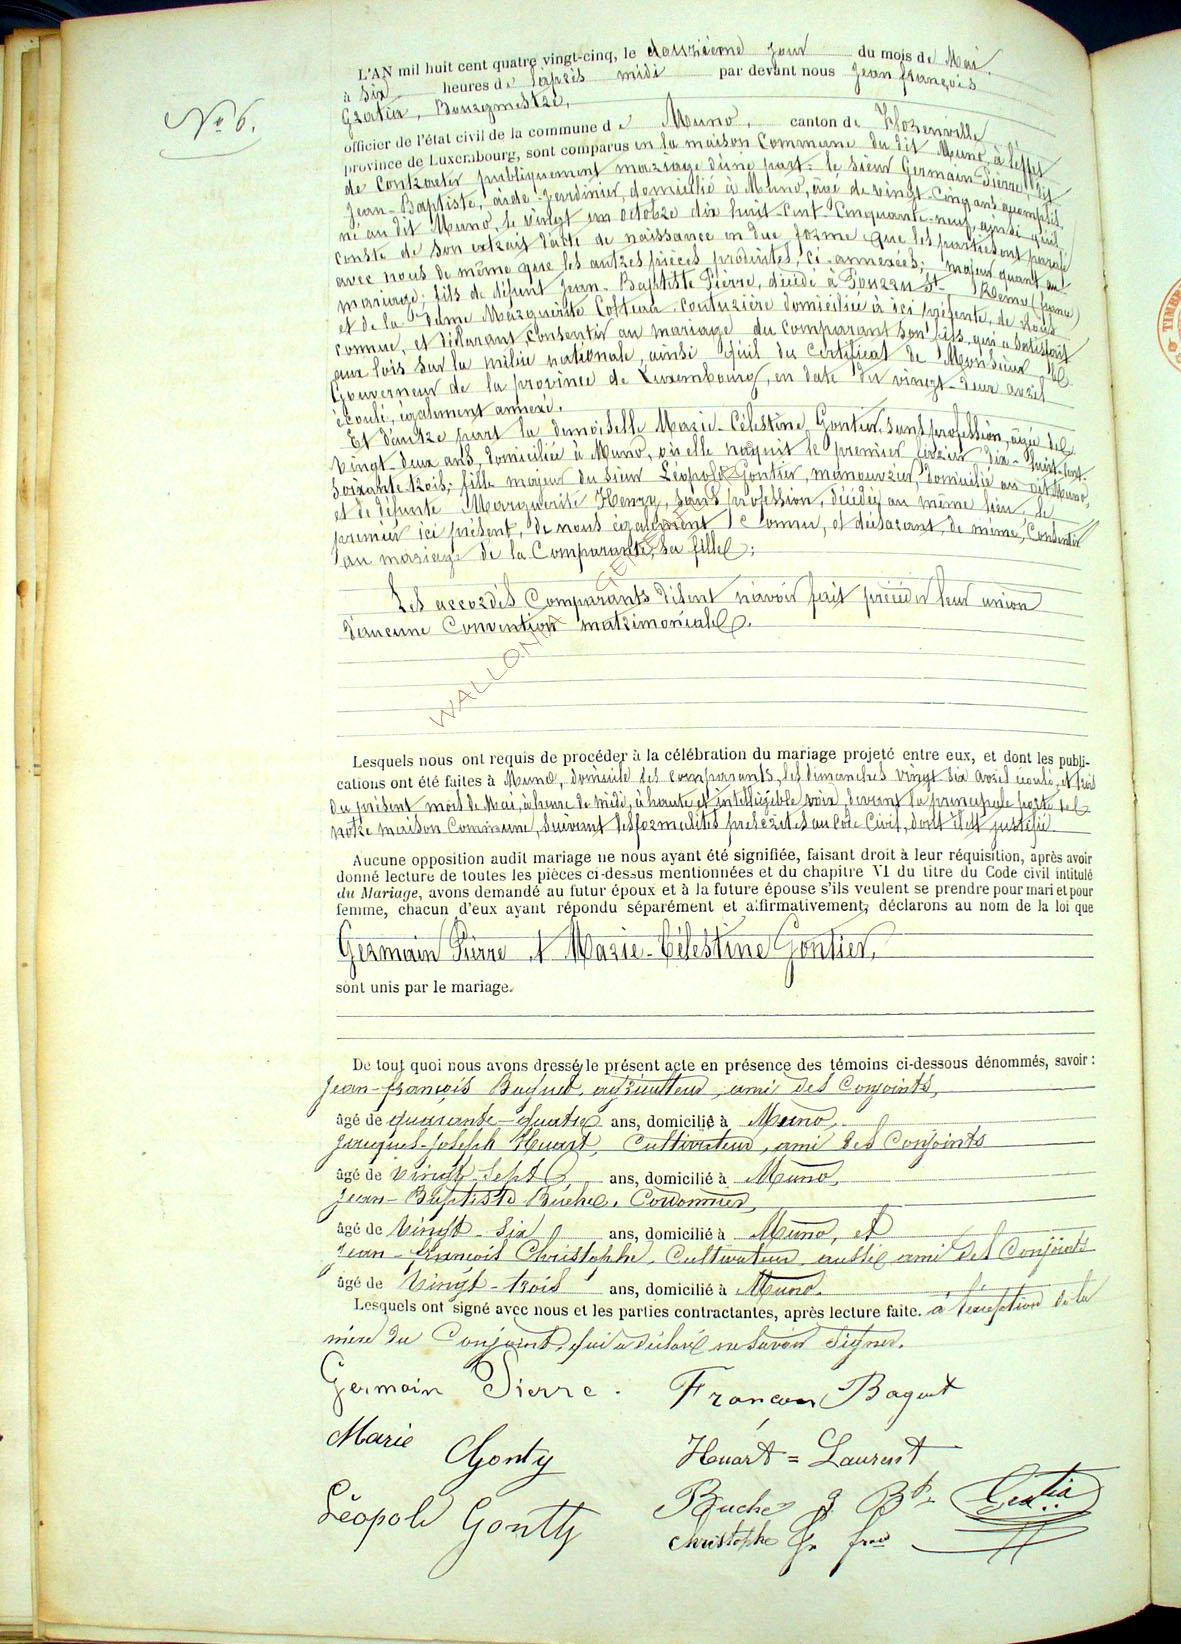 No 6.
L'AN mil huit cent quatre vingt-cinq, le douzième jour du mois de Mai.
à six heures de l'après midi par devant nous Jean françois
Gratia, Bourgmestre,
officier de l'état civil de la commune de Muno, canton de Florenville
province de Luxembourg, sont comparus en la maison Commune du dit Muno, à l'effet
de Contracter publiquement mariage d'une part: le sieur Germain Pierre, dit
Jean-Baptiste, aide-jardinier, domicilié à Muno, âgé de vingt-cinq ans accomplis,
né au dit Muno, le vingt un octobre dix huit-cent-cinquante-neuf, ainsi qu'il
conste de son extrait d'acte de naissance en due forme que les parties ont parafé
avec nous de même que les autres pièces produites, ci-annexées; majeur quant au
mariage; fils de défunt Jean-Baptiste Pierre, décédé à Pouru St Remy (france)
et de la Dame Marguerite Cotteau couturière domiciliée à ici présente, de nous
connue, et déclarant consentir au mariage du comparant son fils, qui a satisfait
aux lois sur la milice nationale, ainsi qu'il du certificat de Monsieur le
Gouverneur de la province de Luxembourg, en date du vingt-deux avril
écoulé, également annexé.
Et d'autre part la demoiselle Marie-Célestine Gontier, sans profession, âgée de
vingt-deux ans, domiciliée à Muno, où elle naquit le premier février dix-huit-cent-
soixante trois; fille majeur du sieur Léopold Gontier, manouvrier, domicilié au dit Muno,
et de défunte Marguerite Henry, sans profession, décédée au même lieu, le
premier ici présent, de nous également connu, et déclarant, de même, Consentir
au mariage de la Comparante, sa fille;
Les accordés Comparants disent n'avoir fait précéder leur union
d'aucune Convention matrimoniale.
WALLONIA GENEALOGY
Lesquels nous ont requis de procéder à la célébration du mariage projeté entre eux, et dont les publi-
cations ont été faites à Muno, domicile des comparants, les dimanches vingt six avril écoulé, et trois
du présent mois de Mai, à heure de midi, à haute et intelligible voix, devant la principale porte de
notre maison Commune, suivant les formalités prescrites au Code Civil, dont il est justifié.
Aucune opposition audit mariage ne nous ayant été signifiée, faisant droit à leur réquisition, après avoir
donné lecture de toutes les pièces ci-dessus mentionnées et du chapitre VI du titre du Code civil intitulé
du Mariage, avons demandé au futur époux et à la future épouse s'ils veulent se prendre pour mari et pour
femme, chacun d'eux ayant répondu séparément et affirmativement, déclarons au nom de la loi que
Germain Pierre et Marie-Célestine Gontier,
sont unis par le mariage.
De tout quoi nous avons dressé le présent acte en présence des témoins ci-dessous dénommés, savoir:
Jean-françois Baquet, agriculteur, ami des Conjoints,
âgé de quarante-quatre ans, domicilié à Muno,
Jacques-Joseph Huart, Cultivateur, ami des Conjoints
âgé de vingt-sept ans, domicilié à Muno,
Jean-Baptiste Buche, Cordonnier,
âgé de vingt-six ans, domicilié à Muno, et
Jean-françois Christophe, Cultivateur, aussi ami des Conjoints
âgé de vingt-trois ans, domicilié à Muno.
Lesquels ont signé avec nous et les parties contractantes, après lecture faite. à l'exception de la
mère du Conjoint, qui a déclaré ne savoir signer.
Germain Pierre. Françou Baquet
Marie Gonty Huart = Laurent
Léopold Gonty Buche J Bte Gratia
Christophe Jn frois
TIMBRE